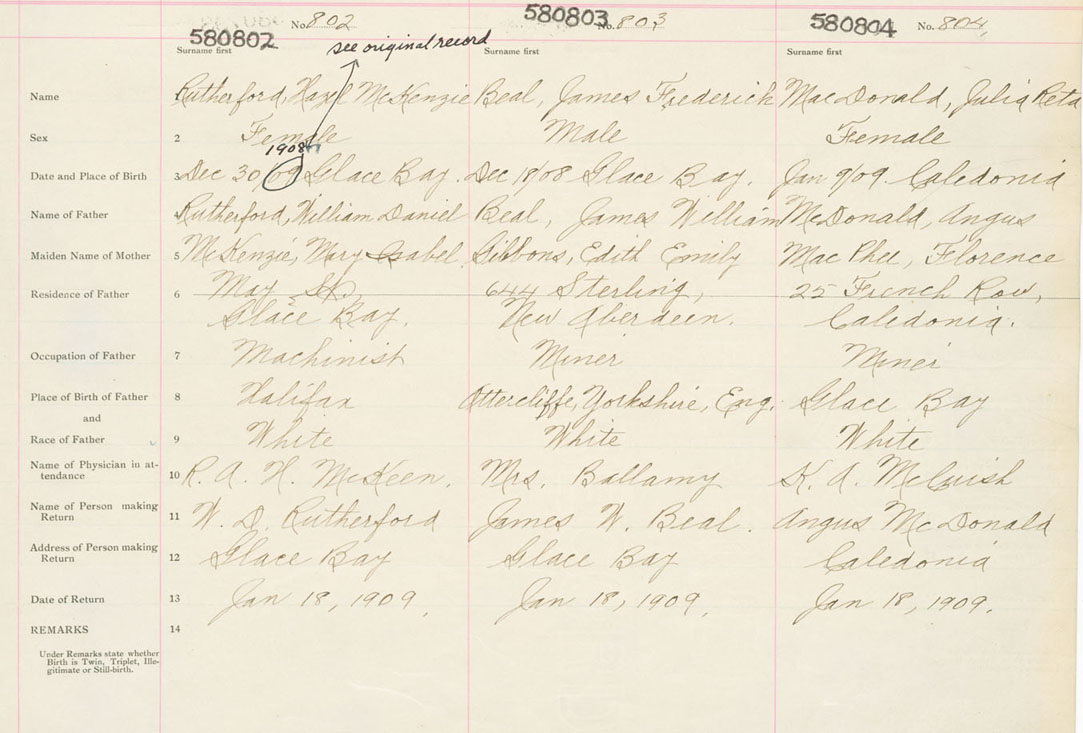 No. 802 580803 No. 803 580804 No. 804
580802 see original record
Surname first Surname first Surname first
Name Rutherford, Hazel McKenzie Beal, James Frederick MacDonald, Julia Reta
Sex 2 Female Male Female
1908
Date and Place of Birth 3 Dec 30/09 Glace Bay. Dec 18/08 Glace Bay. Jan 9/09. Caledonia
Name of Father Rutherford, William Daniel Beal, James William McDonald, Angus
Maiden Name of Mother 5 McKenzie, Mary Isabel. Gibbons, Edith Emily MacPhee, Florence
Residence of Father 6 May St., 644 Sterling, 25 French Row,
Glace Bay. New Aberdeen. Caledonia.
Occupation of Father 7 Machinist Miner Miner
Place of Birth of Father 8 Halifax Attercliffe, Yorkshire, Eng. Glace Bay
and
Race of Father 9 White White White
Name of Physician in at-
tendance 10 R. A. H. McKeen. Mrs. Ballamy K. A. McCuish
Name of Person making
Return 11 W. D. Rutherford James W. Beal. Angus McDonald
Address of Person making
Return 12 Glace Bay Glace Bay Caledonia
Date of Return 13 Jan 18, 1909. Jan 18, 1909. Jan 18, 1909.
REMARKS 14
Under Remarks state whether
Birth is Twin, Triplet, Ille-
gitimate or Still-birth.